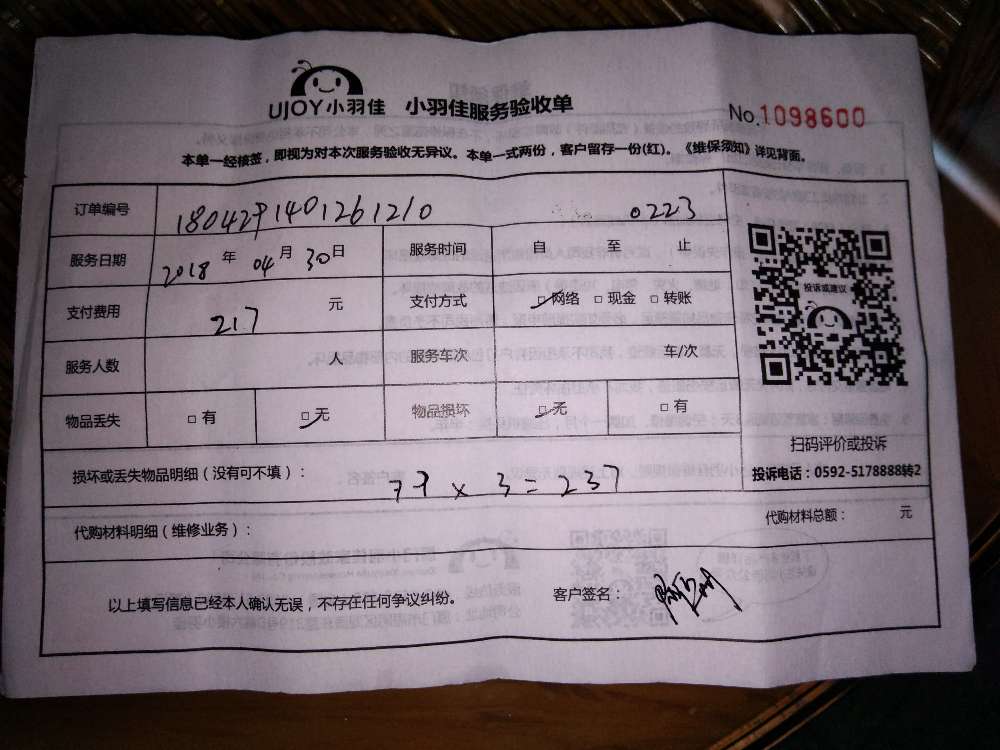 UJOY小羽佳 小羽佳服务验收单
No.1098600
本单一经核签，即视为对本次服务验收无异议。本单一式两份，客户留存一份(红)。《维保须知》详见背面。
订单编号 1804291401261210 0223
服务日期 2018 年 04 月 30 日 服务时间 自 至 止
支付费用 217 元 支付方式 网络 现金 转账
服务人数 人 服务车次 车/次
物品丢失 有 无 物品损坏 无 有
投诉或建议
扫码评价或投诉
投诉电话：0592-5178888转2
损坏或丢失物品明细（没有可不填）： 79 x 3 = 237
代购材料明细（维修业务）： 代购材料总额： 元
以上填写信息已经本人确认无误，不存在任何争议纠纷。 客户签名：